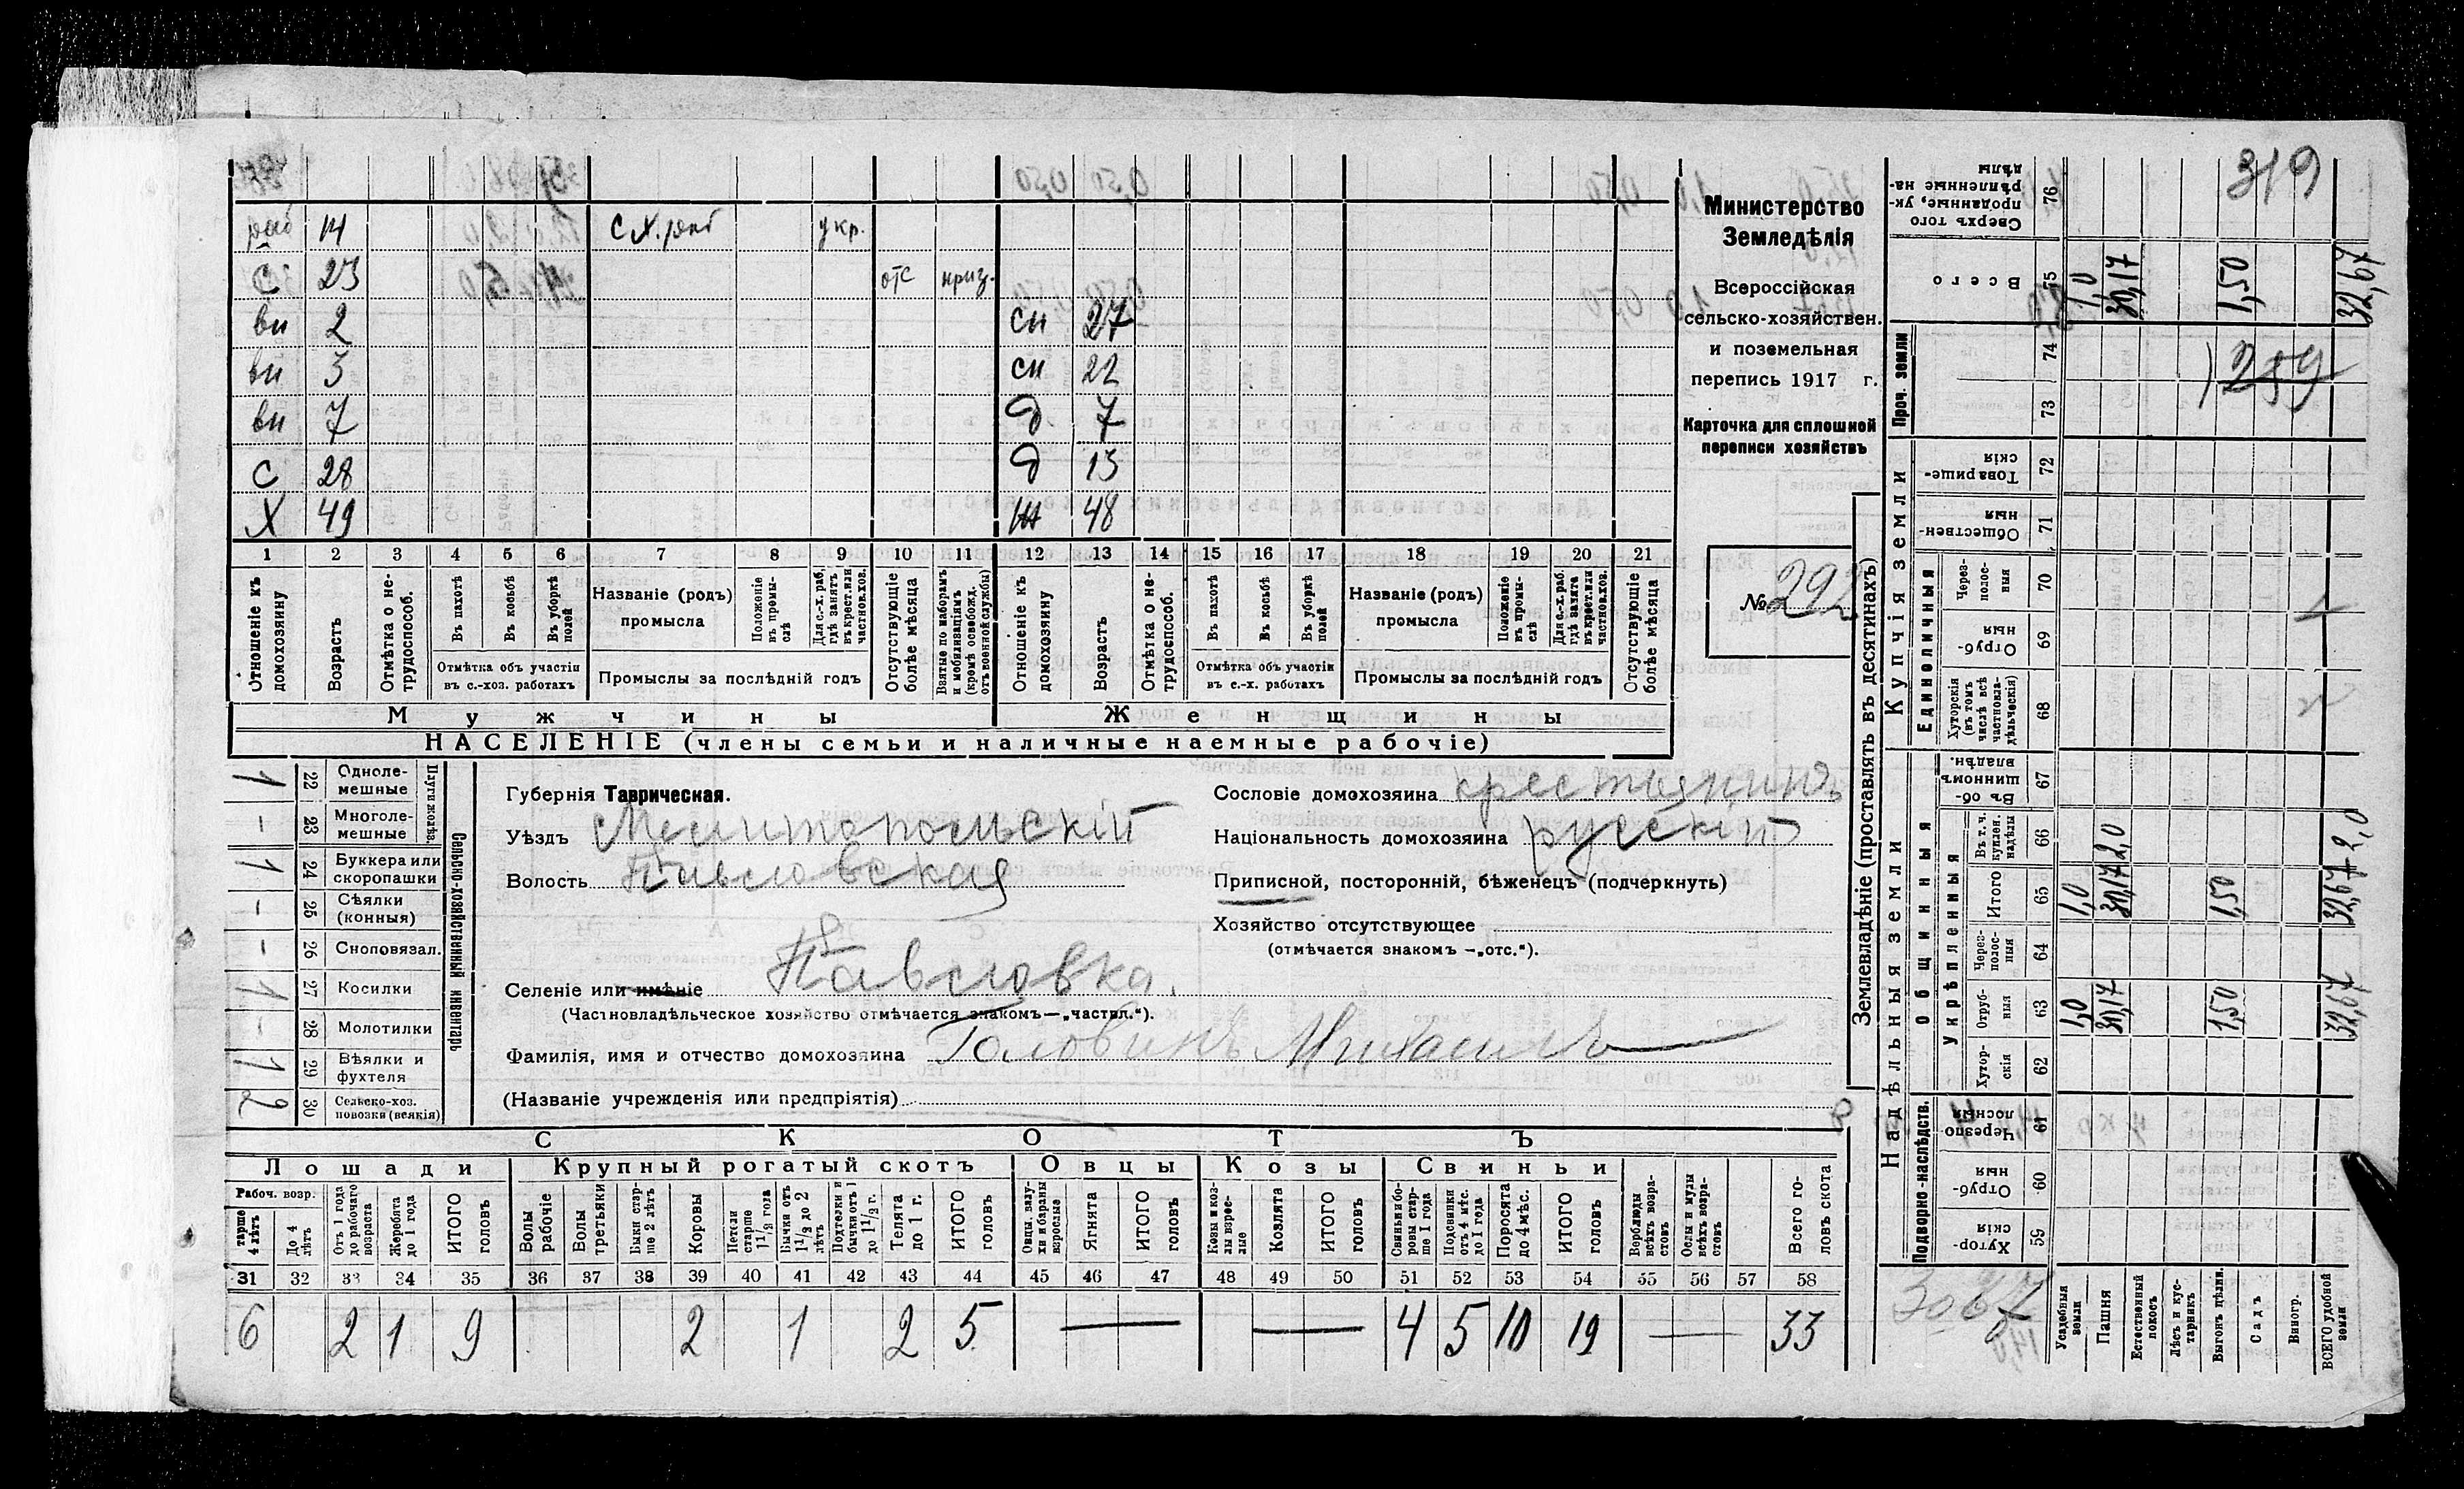 319
раб 14 с х. раб укр.
с 23 отс приз.
вн 2 сн 27
вн 3 сн 22
вн 7 д 7
с 28 д 13
Х 49 ж 48
1 2 3 4 5 6 7 8 9 10 11 12 13 14 15 16 17 18 19 20 21
Отношеніе къ домохозяину
Возрастъ
Отмѣтка о нетрудоспособ.
Въ пахотѣ
Въ косьбѣ
Въ уборкѣ полей
Отмѣтка объ участіи въ с.-хоз. работахъ
Названіе (родъ) промысла
Положеніе въ промыслѣ
Для с.-х. раб. гдѣ занятъ въ крест. или частнов. хоз.
Промыслы за послѣдній годъ
Отсутствующіе болѣе мѣсяца
Взятые по наборамъ и мобилизаціямъ (кромѣ освобожд. отъ военной службы)
Отношеніе къ домохозяину
Возрастъ
Отмѣтка о нетрудоспособ.
Въ пахотѣ
Въ косьбѣ
Въ уборкѣ полей
Отмѣтка объ участіи въ с.-х. работахъ
Названіе (родъ) промысла
Положеніе въ промыслѣ
Для с.-х. раб. гдѣ занята въ крест. или частнов. хоз.
Промыслы за послѣдній годъ
Отсутствующіе болѣе мѣсяца
Мужчины Женщины
НАСЕЛЕНІЕ (члены семьи и наличные наемные рабочіе)
Министерство
Земледѣлія
Всероссійская
сельско-хозяйствен.
и поземельная
перепись 1917 г.
Карточка для сплошной
переписи хозяйствъ
№ 292
Сельско-хозяйственный инвентарь
Плуги железн.
22 Однолемешные 1
23 Многолемешные -
24 Буккера или скоропашки 1
25 Сѣялки (конныя) -
26 Сноповязал. -
27 Косилки 1
28 Молотилки -
29 Вѣялки и фухтеля 1
30 Сельско-хоз. повозки (всякія) 2
Губернія Таврическая.
Уѣздъ Мелитопольскій
Волость Павловская
Селеніе или имѣніе Павловка.
(Частновладѣльческое хозяйство отмѣчается знакомъ—„частвл.“).
Фамилія, имя и отчество домохозяина Головинъ Михаилъ
(Названіе учрежденія или предпріятія)
Сословіе домохозяина крестьянинъ
Національность домохозяина русскій
Приписной, посторонній, бѣженецъ (подчеркнуть)
Хозяйство отсутствующее
(отмѣчается знакомъ —„отс.“).
СКОТЪ
Лошади Крупный рогатый скотъ Овцы Козы Свиньи
Рабоч. возр.
тарше 4 лѣтъ
До 4 лѣтъ
Отъ 1 года до рабочаго возраста
Жеребята до 1 года
ИТОГО головъ
Волы рабочіе
Волы третьяки
Быки старше 2 лѣтъ
Коровы
Нетели старше 1 1/2 года
Бычки отъ 1 1/2 до 2 лѣтъ
Подтелки и бычки отъ 1 до 1 1/2 г.
Телята до 1 г.
ИТОГО головъ
Овцы, валухи и бараны взрослые
Ягнята
ИТОГО головъ
Козы и козлы взрослые
Козлята
ИТОГО головъ
Свиньи и боровы старше 1 года
Подсвинки отъ 4 мѣс. до 1 года
Поросята до 4 мѣс.
ИТОГО головъ
Верблюды всѣхъ возрастовъ
Ослы и мулы всѣхъ возрастовъ
Всего головъ скота
31 32 33 34 35 36 37 38 39 40 41 42 43 44 45 46 47 48 49 50 51 52 53 54 55 56 57 58
6 2 1 9 2 1 2 5 — — 4 5 10 19 — 33
Землевладѣніе (проставлять въ десятинахъ)
Надѣльныя земли Купчія земли Проч. земли
Подворно-наслѣдств. Общинныя Укрѣпленныя Единоличныя
Сверхъ того проданные, укрѣпленные надѣлы 76
Всего 75 1,0 30,17 1,50 32,67
74
73
259
Товарищескія 72
Общественныя 71
Черезполосныя 70
Отрубныя 69
Хуторскія (въ томъ числѣ всѣ частновладѣльческія) 68
Въ общинномъ владѣн. 67
Въ т. ч. куплен. надѣлы 66 2,0 2,0
Итого 65 1,0 30,17 1,50 32,67
Черезполосныя 64
Отрубныя 63 1,0 30,17 1,50 32,67
Хуторскія 62
Черезполосныя 61
Отрубныя 60
Хуторскія 59
Усадебныя земли
Пашня
Естественный покосъ
Лѣсъ и кустарникъ
Выгонъ цѣлин.
Садъ
Виногр.
ВСЕГО удобной земли